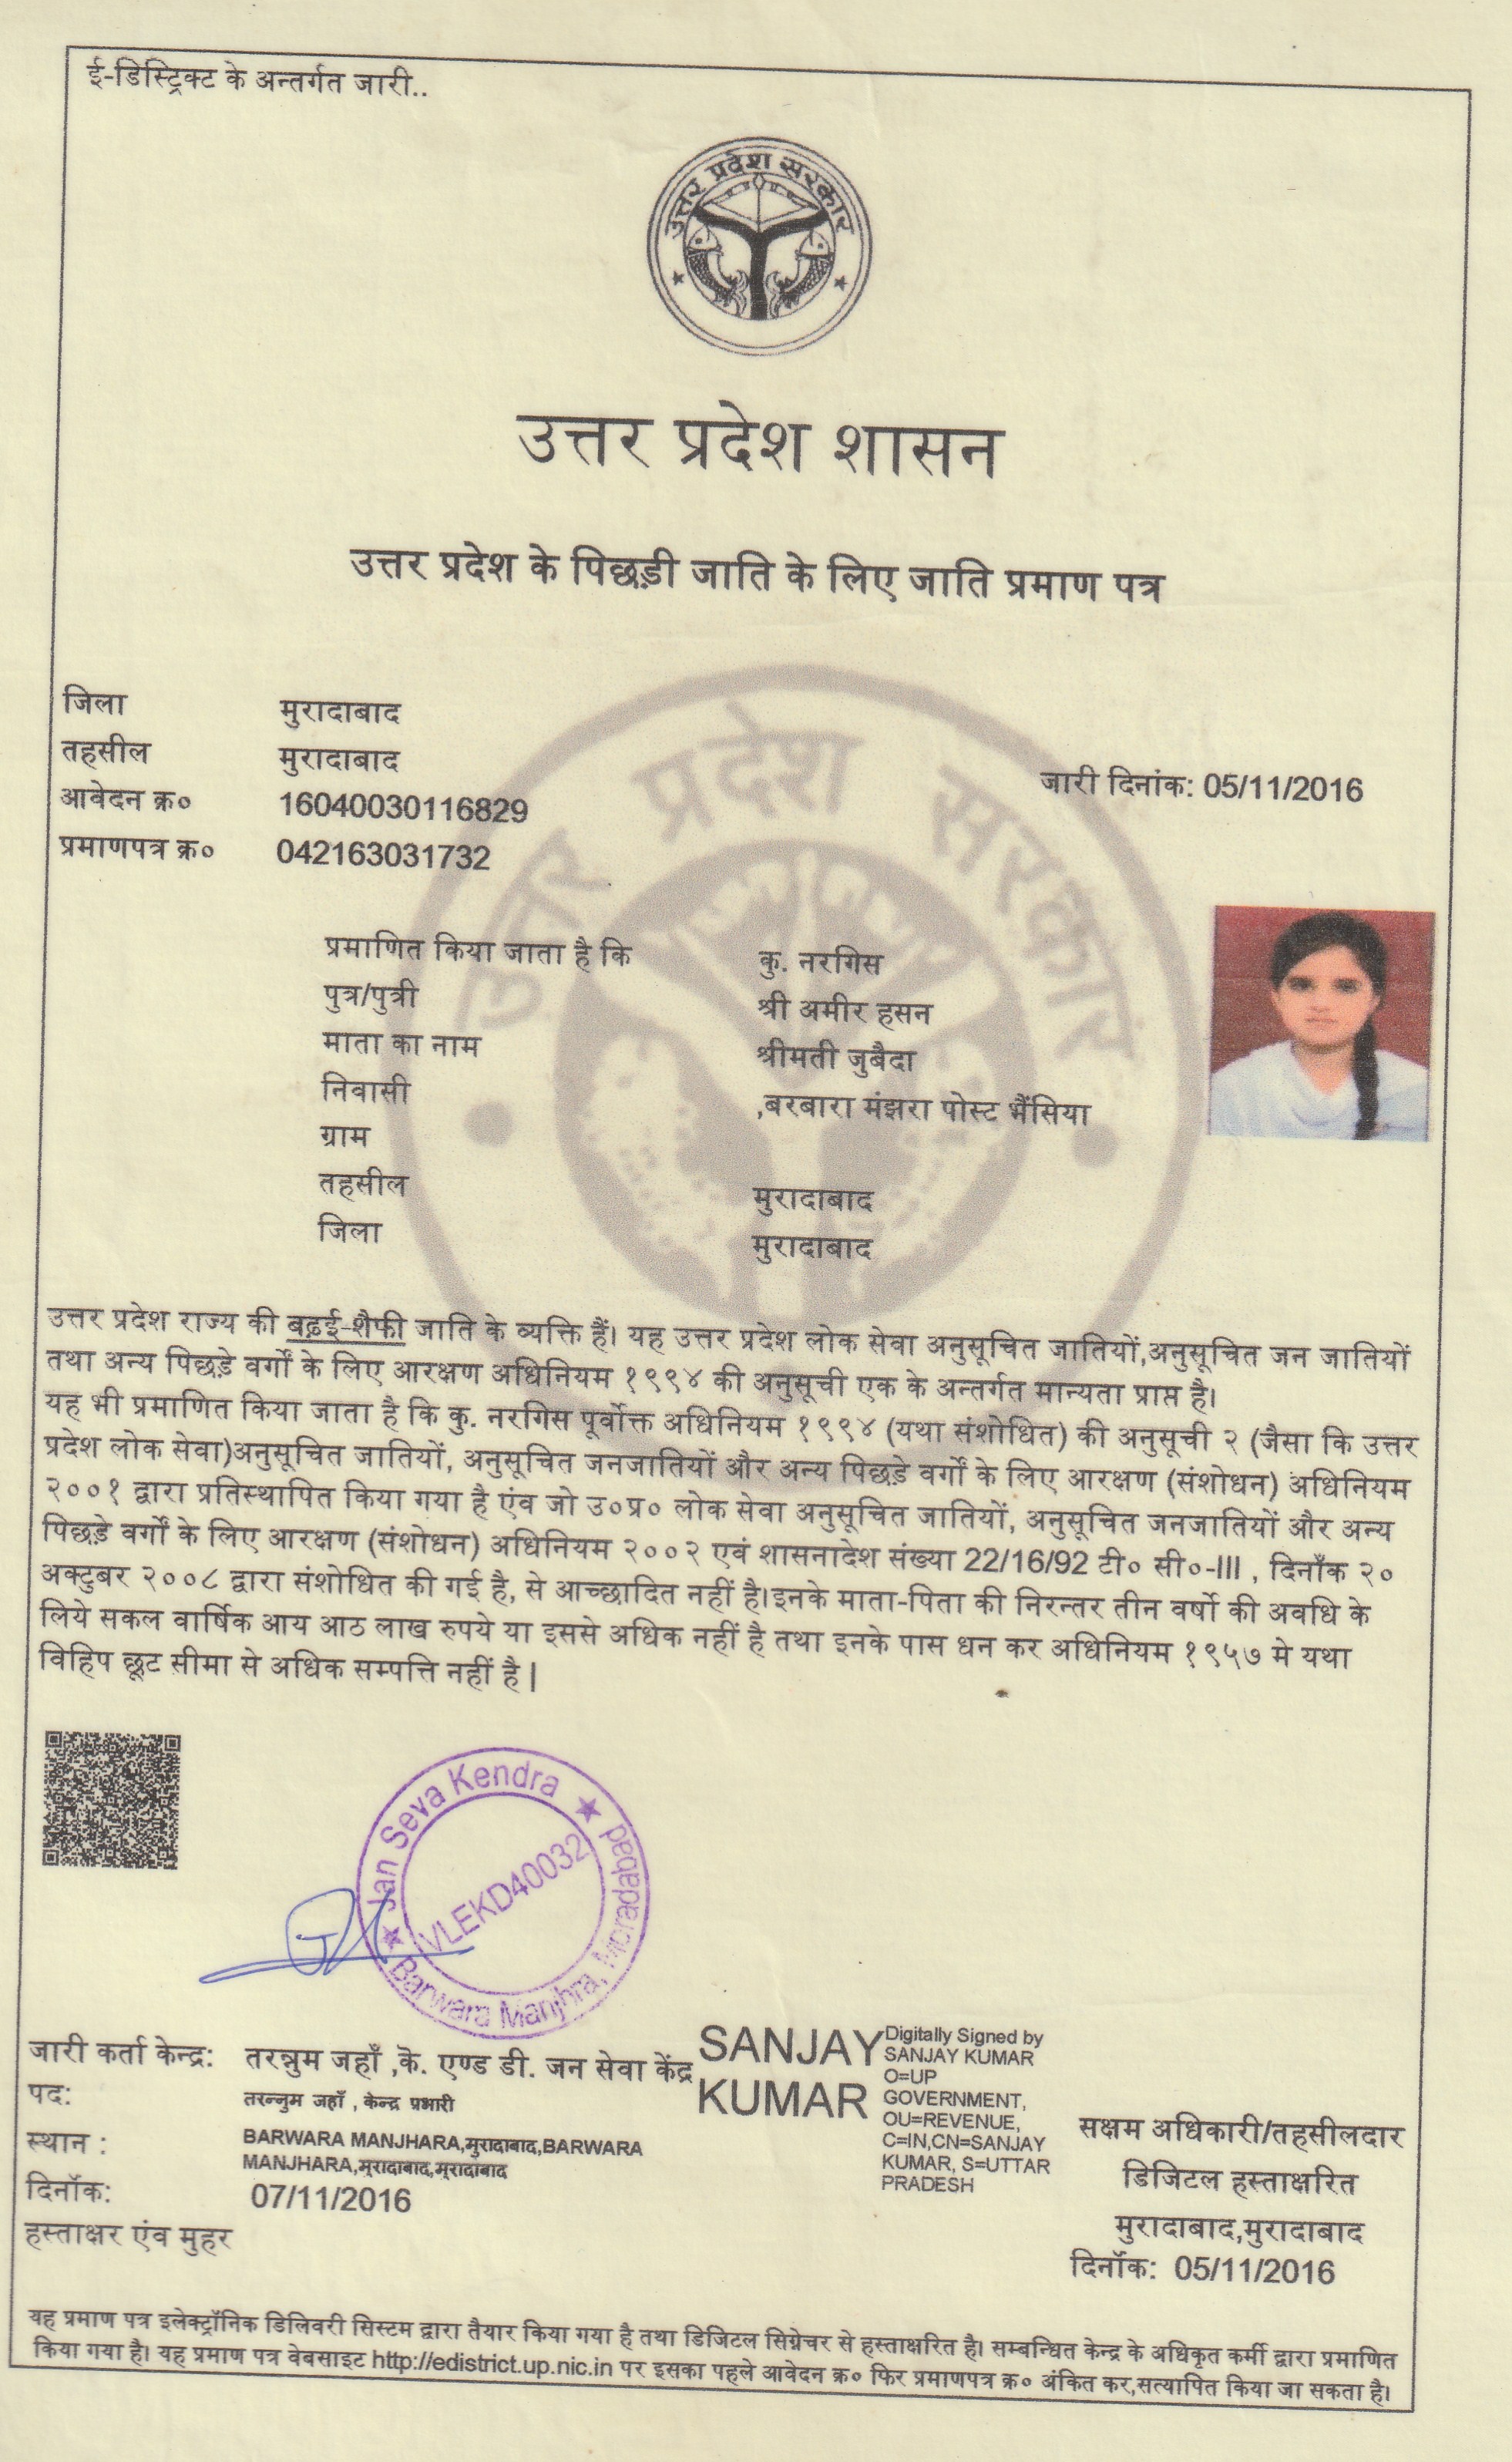 ई-डिस्ट्रिक्ट के अन्तर्गत जारी..
उत्तर प्रदेश सरकार
उत्तर प्रदेश शासन
उत्तर प्रदेश के पिछड़ी जाति के लिए जाति प्रमाण पत्र
जिला मुरादाबाद
तहसील मुरादाबाद
जारी दिनांक: 05/11/2016
आवेदन क्र० 16040030116829
प्रमाणपत्र क्र० 042163031732
उत्तर प्रदेश सरकार
प्रमाणित किया जाता है कि कु. नरगिस
पुत्र/पुत्री श्री अमीर हसन
माता का नाम श्रीमती जुबैदा
निवासी ,बरबारा मंझरा पोस्ट भैंसिया
ग्राम
तहसील मुरादाबाद
जिला मुरादाबाद
उत्तर प्रदेश राज्य की बढ़ई-शैफी जाति के व्यक्ति हैं। यह उत्तर प्रदेश लोक सेवा अनुसूचित जातियों,अनुसूचित जन जातियों
तथा अन्य पिछड़े वर्गों के लिए आरक्षण अधिनियम १९९४ की अनुसूची एक के अन्तर्गत मान्यता प्राप्त है।
यह भी प्रमाणित किया जाता है कि कु. नरगिस पूर्वोक्त अधिनियम १९९४ (यथा संशोधित) की अनुसूची २ (जैसा कि उत्तर
प्रदेश लोक सेवा)अनुसूचित जातियों, अनुसूचित जनजातियों और अन्य पिछड़े वर्गों के लिए आरक्षण (संशोधन) अधिनियम
२००१ द्वारा प्रतिस्थापित किया गया है एंव जो उ०प्र० लोक सेवा अनुसूचित जातियों, अनुसूचित जनजातियों और अन्य
पिछड़े वर्गों के लिए आरक्षण (संशोधन) अधिनियम २००२ एवं शासनादेश संख्या 22/16/92 टी० सी०-III , दिनाँक २०
अक्टुबर २००८ द्वारा संशोधित की गई है, से आच्छादित नहीं है।इनके माता-पिता की निरन्तर तीन वर्षो की अवधि के
लिये सकल वार्षिक आय आठ लाख रुपये या इससे अधिक नहीं है तथा इनके पास धन कर अधिनियम १९५७ मे यथा
विहिप छूट सीमा से अधिक सम्पत्ति नहीं है |
Jan Seva Kendra
VLEKD40032
Barwara Manjhra, Moradabad
जारी कर्ता केन्द्र: तरन्नुम जहाँ ,के. एण्ड डी. जन सेवा केंद्र
पद: तरन्नुम जहाँ , केन्द्र प्रभारी
स्थान : BARWARA MANJHARA,मुरादाबाद,BARWARA
MANJHARA,मुरादाबाद,मुरादाबाद
दिनॉक: 07/11/2016
हस्ताक्षर एंव मुहर
SANJAY
KUMAR
Digitally Signed by
SANJAY KUMAR
O=UP
GOVERNMENT,
OU=REVENUE,
C=IN,CN=SANJAY
KUMAR, S=UTTAR
PRADESH
सक्षम अधिकारी/तहसीलदार
डिजिटल हस्ताक्षरित
मुरादाबाद,मुरादाबाद
दिनॉक: 05/11/2016
यह प्रमाण पत्र इलेक्ट्रॉनिक डिलिवरी सिस्टम द्वारा तैयार किया गया है तथा डिजिटल सिग्नेचर से हस्ताक्षरित है। सम्बन्धित केन्द्र के अधिकृत कर्मी द्वारा प्रमाणित
किया गया है। यह प्रमाण पत्र वेबसाइट http://edistrict.up.nic.in पर इसका पहले आवेदन क्र० फिर प्रमाणपत्र क्र० अंकित कर,सत्यापित किया जा सकता है।